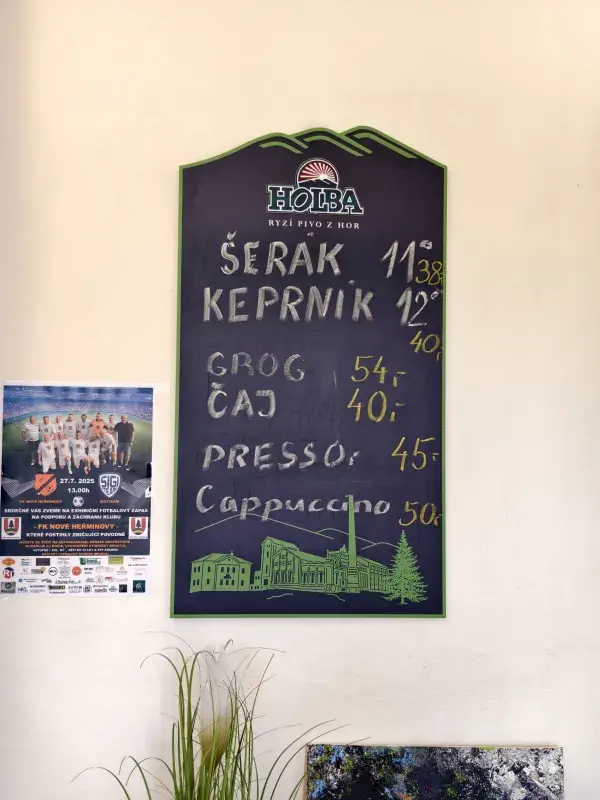 HOLBA
RYZÍ PIVO Z HOR
ŠERÁK 11° 38,-
KEPRNÍK 12°
40,-
GROG 54,-
ČAJ 40,-
PRESSO, 45,-
Cappuccino 50,-
27.7. 2025
13.00h
FK NOVÉ HEŘMINOVY
SRDEČNĚ VÁS ZVEME NA EXHIBIČNÍ FOTBALOVÝ ZÁPAS
NA PODPORU A ZÁCHRANU KLUBU
- FK NOVÉ HEŘMINOVY
KTERÉ POSTIHLY ZNIČUJÍCÍ POVODNĚ